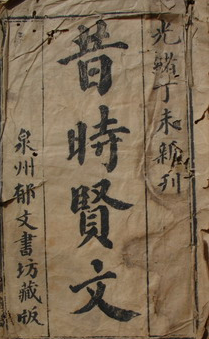 光緒丁未新刊
昔時賢文
泉州郁文書坊藏版